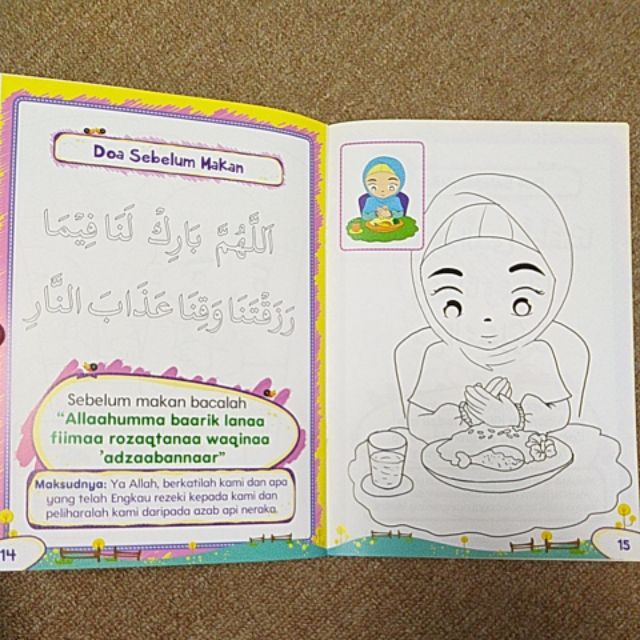 Doa Sebelum Makan
اَللَّهُمَّ بَارِكْ لَنَا فِيْمَا
رَزَقْتَنَا وَقِنَا عَذَابَ النَّارِ
Sebelum makan bacalah
“Allaahumma baarik lanaa
fiimaa rozaqtanaa waqinaa
’adzaabannaar”
Maksudnya: Ya Allah, berkatilah kami dan apa
yang telah Engkau rezeki kepada kami dan
peliharalah kami daripada azab api neraka.
14
15